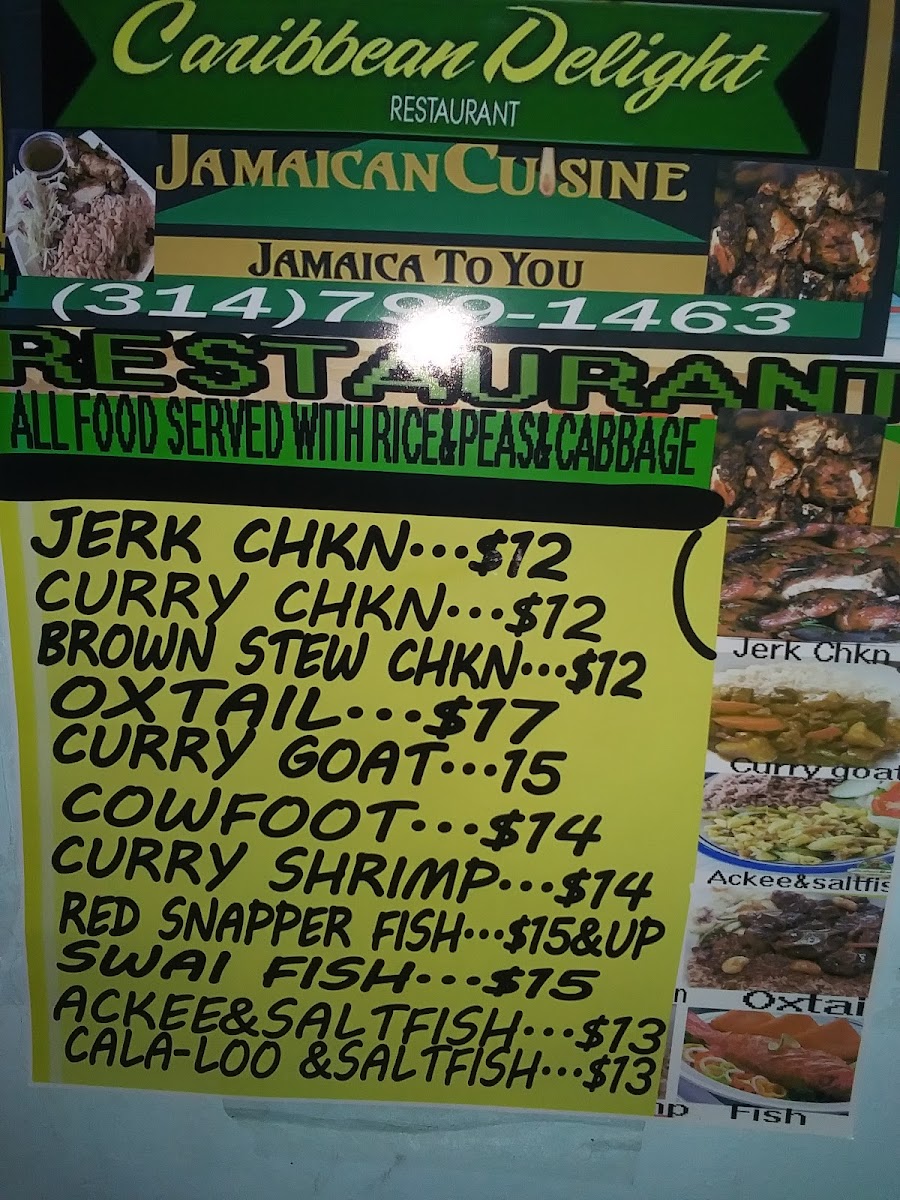 Caribbean Delight
RESTAURANT
JAMAICAN CUISINE
JAMAICA TO YOU
(314)799-1463
RESTAURANT
ALL FOOD SERVED WITH RICE&PEAS&CABBAGE
JERK CHKN...$12
CURRY CHKN...$12
BROWN STEW CHKN...$12
OXTAIL...$17
CURRY GOAT...15
COWFOOT...$14
CURRY SHRIMP...$14
RED SNAPPER FISH...$15&UP
SWAI FISH...$15
ACKEE&SALTFISH...$13
CALA-LOO &SALTFISH...$13
Jerk Chkn
Curry goat
Ackee&saltfis
Oxtai
Fish